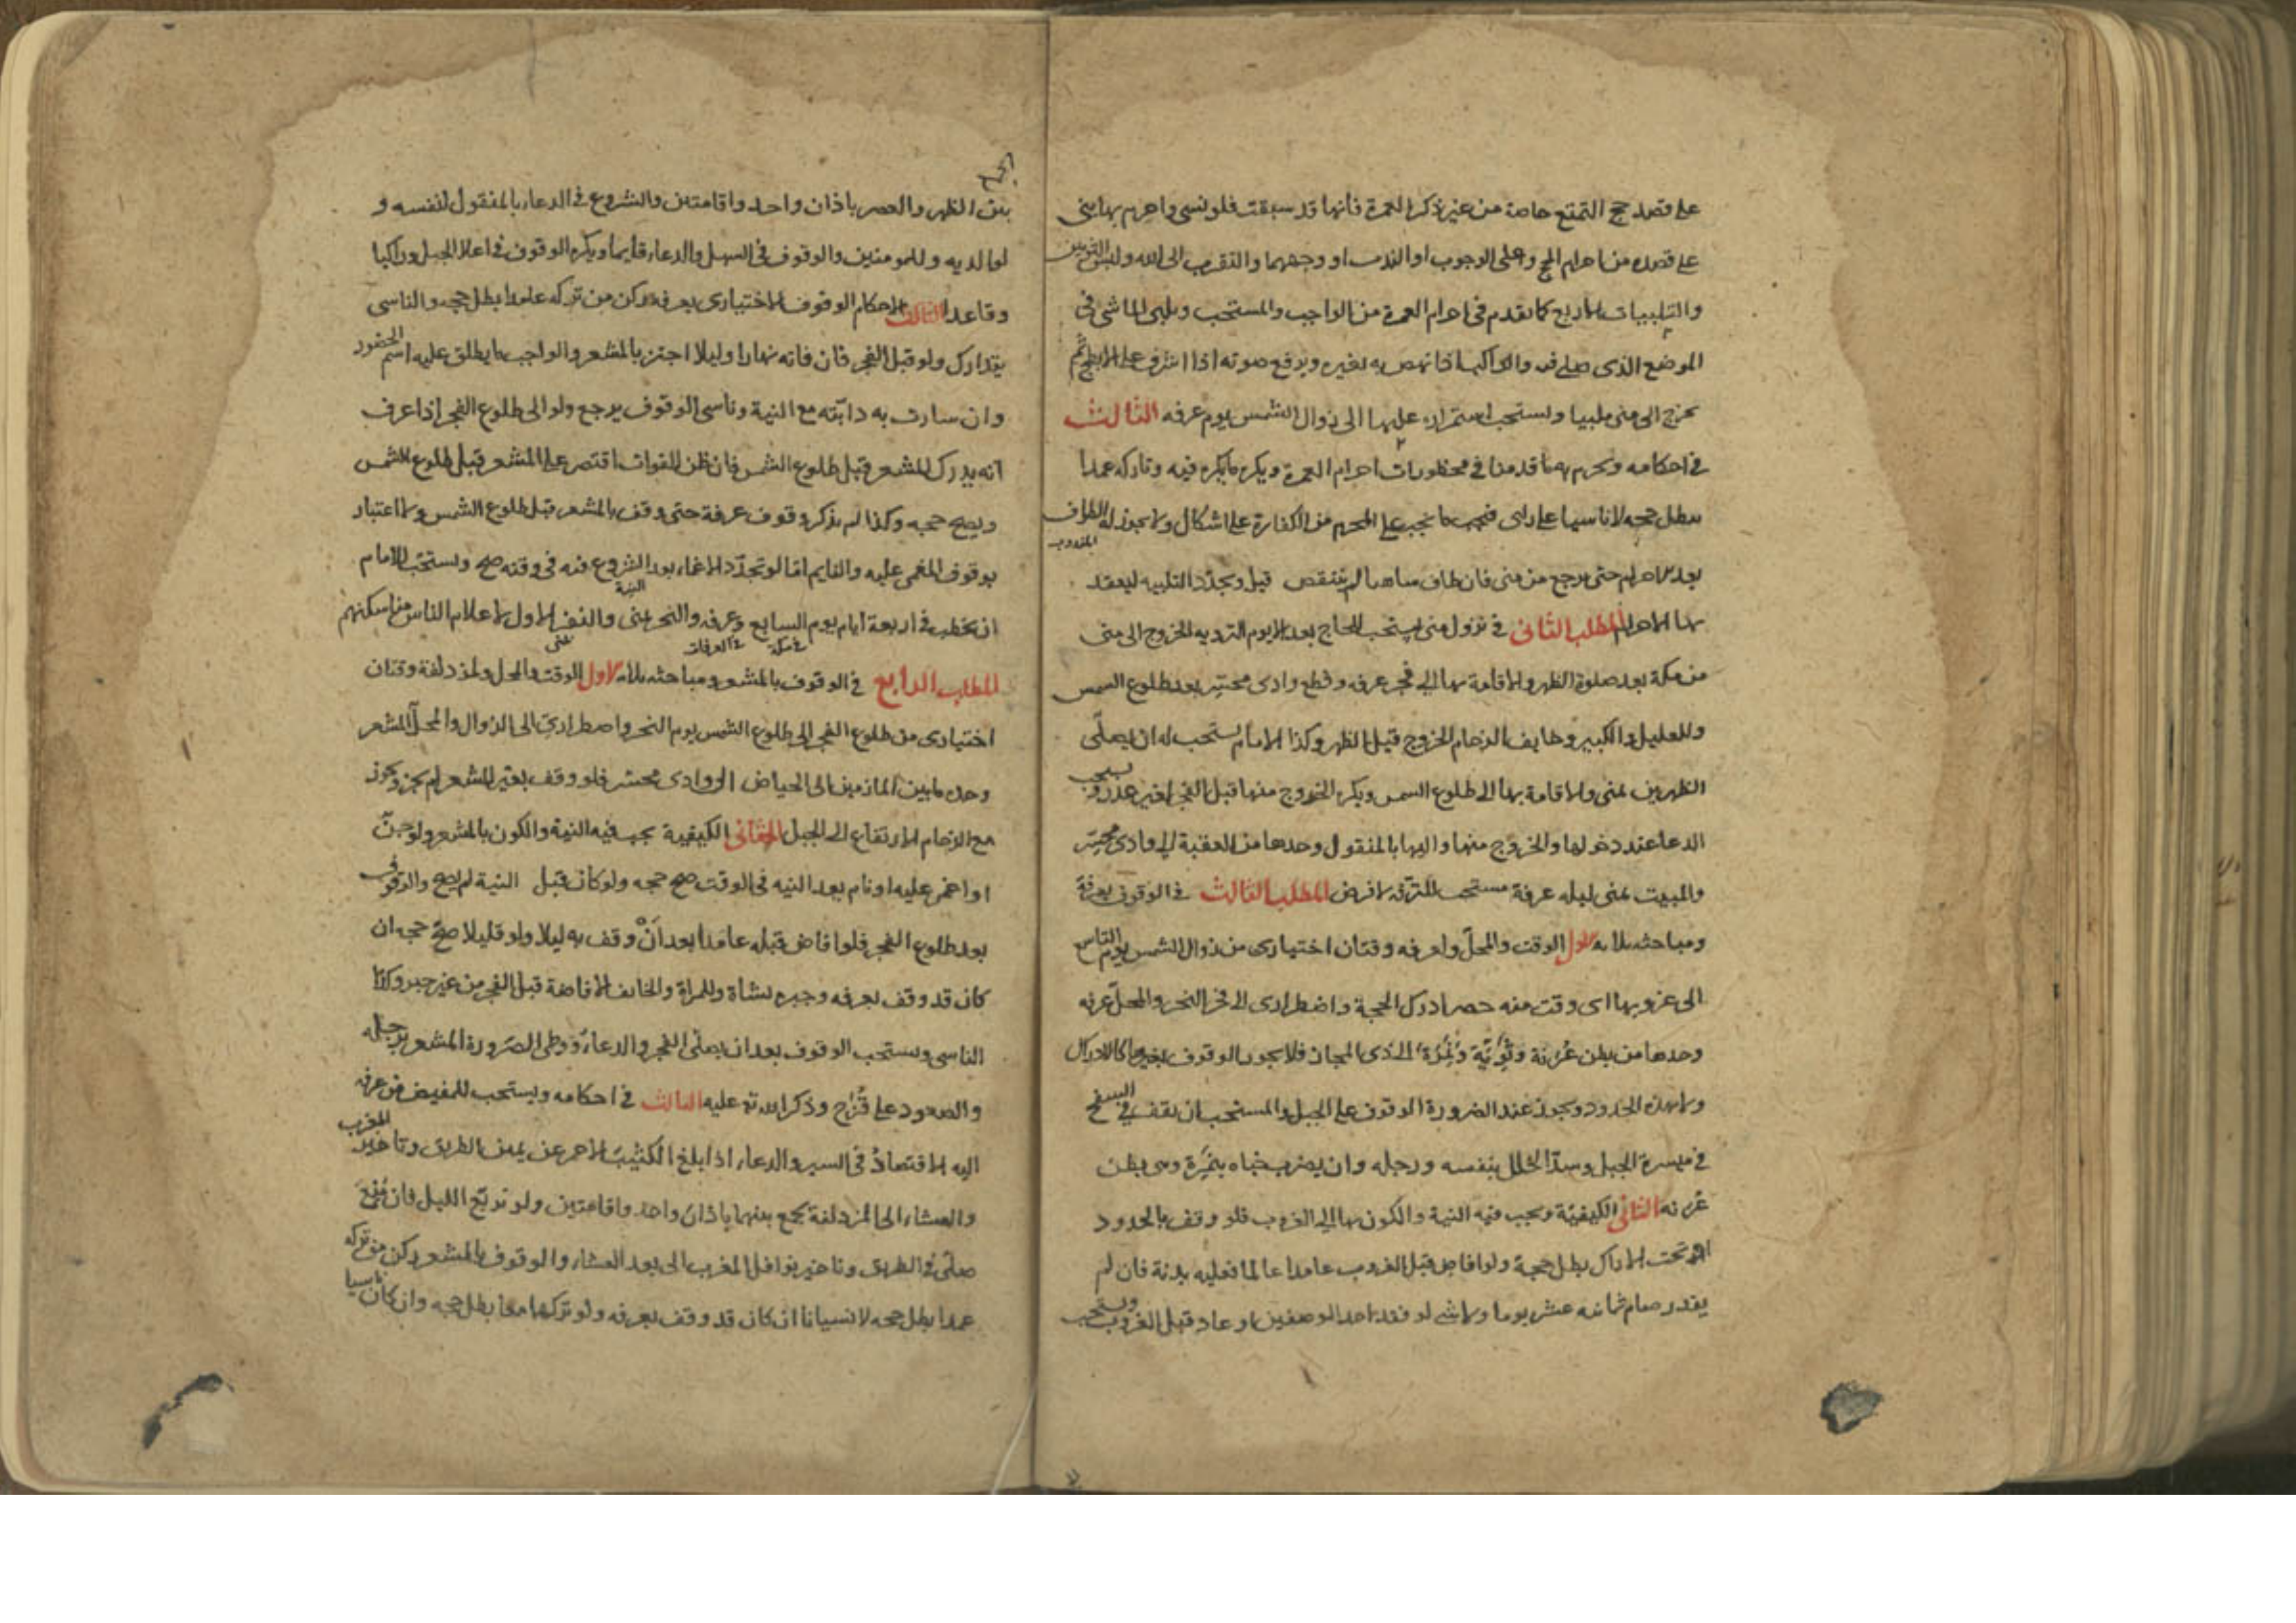 على قصد حج التمتع خاصة من غير ذكر العمرة فانها قد سبقت فلو نسي واحرم بها بنى
على قصده من احرام الحج وعلى الوجوب او الندب او وجههما والتقرب الى الله ولبس الثوبين
والتلبيات الاربع كما تقدم في احرام العمرة من الواجب والمستحب ويلبى الماشى فى
الموضع الذى صلى فيه والراكب اذا نهض به بعيره ويرفع صوته اذا اشرف على الابطح ثم
يخرج الى منى ملبيا ويستحب استمراره عليها الى زوال الشمس يوم عرفه الثالث
في احكامه ويحرم به ما قدمنا في محظورات احرام العمرة ويكره ما يكره فيه وتاركه عمدا
يبطل حجه لا ناسيا على راى فيجب ما يجب على المحرم من الكفارة على اشكال ولا يجوز له الطواف المندوب
بعد الاحرام حتى يرجع من منى فان طاف ساهيا لم ينتقض قيل ويجدد التلبيه ليعقد
بها الاحرام المطلب الثانى في نزول منى يستحب للحاج بعد الاحرام يوم الترويه الخروج الى منى
من مكة بعد صلوة الظهر والاقامة بها الى فجر عرفه وقطع وادى محسر بعد طلوع الشمس
وللعليل والكبير وخايف الزحام الخروج قبل الظهر وكذا الامام يستحب له ان يصلى
الظهرين بمنى والاقامة بها الى طلوع الشمس ويكره الخروج منها قبل الفجر لغير عذر ويستحب
الدعا عند دخولها والخروج منها واليها بالمنقول وحدها من العقبة الى وادى محسر
والمبيت بمنى ليله عرفة مستحب للترفه لا فرض المطلب الثالث في الوقوف بعرفة
ومباحثه ثلاثه الاول الوقت والمحل ولعرفه وقتان اختيارى من زوال الشمس يوم التاسع
الى غروبها اى وقت منه حضر ادرك الحجة واضطرارى الى فجر النحر والمحل عرفه
وحدها من بطن عُرَنة وثَوِيّة ونَمِرَة الى ذى المجاز فلا يجوز الوقوف بغيرها كالاراك
ولا بهذه الحدود ويجوز عند الضرورة الوقوف على الجبل والمستحب ان يقف في السفح
في ميسرة الجبل وسد الخلل بنفسه ورحله وان يضرب خباه بنَمِرَة وهى بطن
عُرنه الثانى الكيفيّة ويجب فيه النية والكون بها الى الغروب فلو وقف بالحدود
او تحت الاراك بطل حجة ولو افاض قبل الغروب عامدا عالما فعليه بدنة فان لم
يقدر صام ثمانيه عشر يوما ولا شى لو فقد احد الوصفين او عاد قبل الغروب ويستحب
الجمع
بين الظهر والعصر باذان واحد واقامتين والشروع في الدعاء بالمنقول لنفسه و
لوالديه وللمومنين والوقوف فى السهل والدعاء قايما ويكره الوقوف في اعلا الجبل وراكبا
وقاعدا الثالث الاحكام الوقوف الاختيارى بعرفه ركن من تركه عامدا بطل حجه والناسى
يتدارك ولو قبل الفجر فان فاته نهارا وليلا اجتزى بالمشعر والواجب ما يطلق عليه اسم الحضور
وان سارت به دابّته مع النية وناسى الوقوف يرجع ولو الى طلوع الفجر اذا عرف
انه يدرك المشعر قبل طلوع الشمس فان ظن الفوات اقتصر على المشعر قبل طلوع الشمس
ويصح حجه وكذا لو لم يذكر وقوف عرفة حتى وقف بالمشعر قبل طلوع الشمس ولا اعتبار
بوقوف المغمى عليه والنايم امّا لو تجدّد الاغماء بعد الشروع فيه فى وقته صح ويستحبّ للامام
النية
ان يخطب في اربعة ايام يوم السابع وعرفه والنحر بمنى والنفر الاول لاعلام الناس مناسكهم
في مكة في العرفات بمنى
المطلب الرابع في الوقوف بالمشعر ومباحثه ثلاثه الاول الوقت والمحل ولمزدلفة وقتان
اختيارى من طلوع الفجر الى طلوع الشمس يوم النحر واضطرارىّ الى الزوال والمحلّ المشعر
وحده ما بين المازمين الى الحياض الى وادى محسّر فلو وقف بغير المشعر لم يجز ويجوز
مع الزحام الارتفاع الى الجبل الثانى الكيفية يجب فيه النية والكون بالمشعر ولو جنّ
او اغمى عليه او نام بعد النيه فى الوقت صح حجه ولو كان قبل النية لم يصح والوقوف
بعد طلوع الفجر فلو افاض قبله عامدا بعد اَنْ وقف به ليلا ولو قليلا صحّ حجه ان
كان قد وقف بعرفه وجبره بشاة وللمراة والخايف الافاضة قبل الفجر من غير جبر وكذا
الناسى ويستحب الوقوف بعد ان يصلى الفجر والدعاء ووطى الصّرورة المشعر برجله
والصعود على قُزَح وذكر الله تع عليه الثالث في احكامه ويستحب للمفيض من عرفه
اليه الاقتصاد فى السير والدعاء اذا بلغ الكثيب الاحمر عن يمين الطريق وتاخير المغرب
والعشاء الى المزدلفة يجمع بينهما باذان واحد واقامتين ولو تربّع الليل فان مُنِعَ
صلّى في الطريق وتاخير نوافل المغرب الى بعد العشاء والوقوف بالمشعر ركن من تركه
عمدا بطل حجه لا نسيانا ان كان قد وقف بعرفه ولو تركهما معا بطل حجه وان كان ناسيا